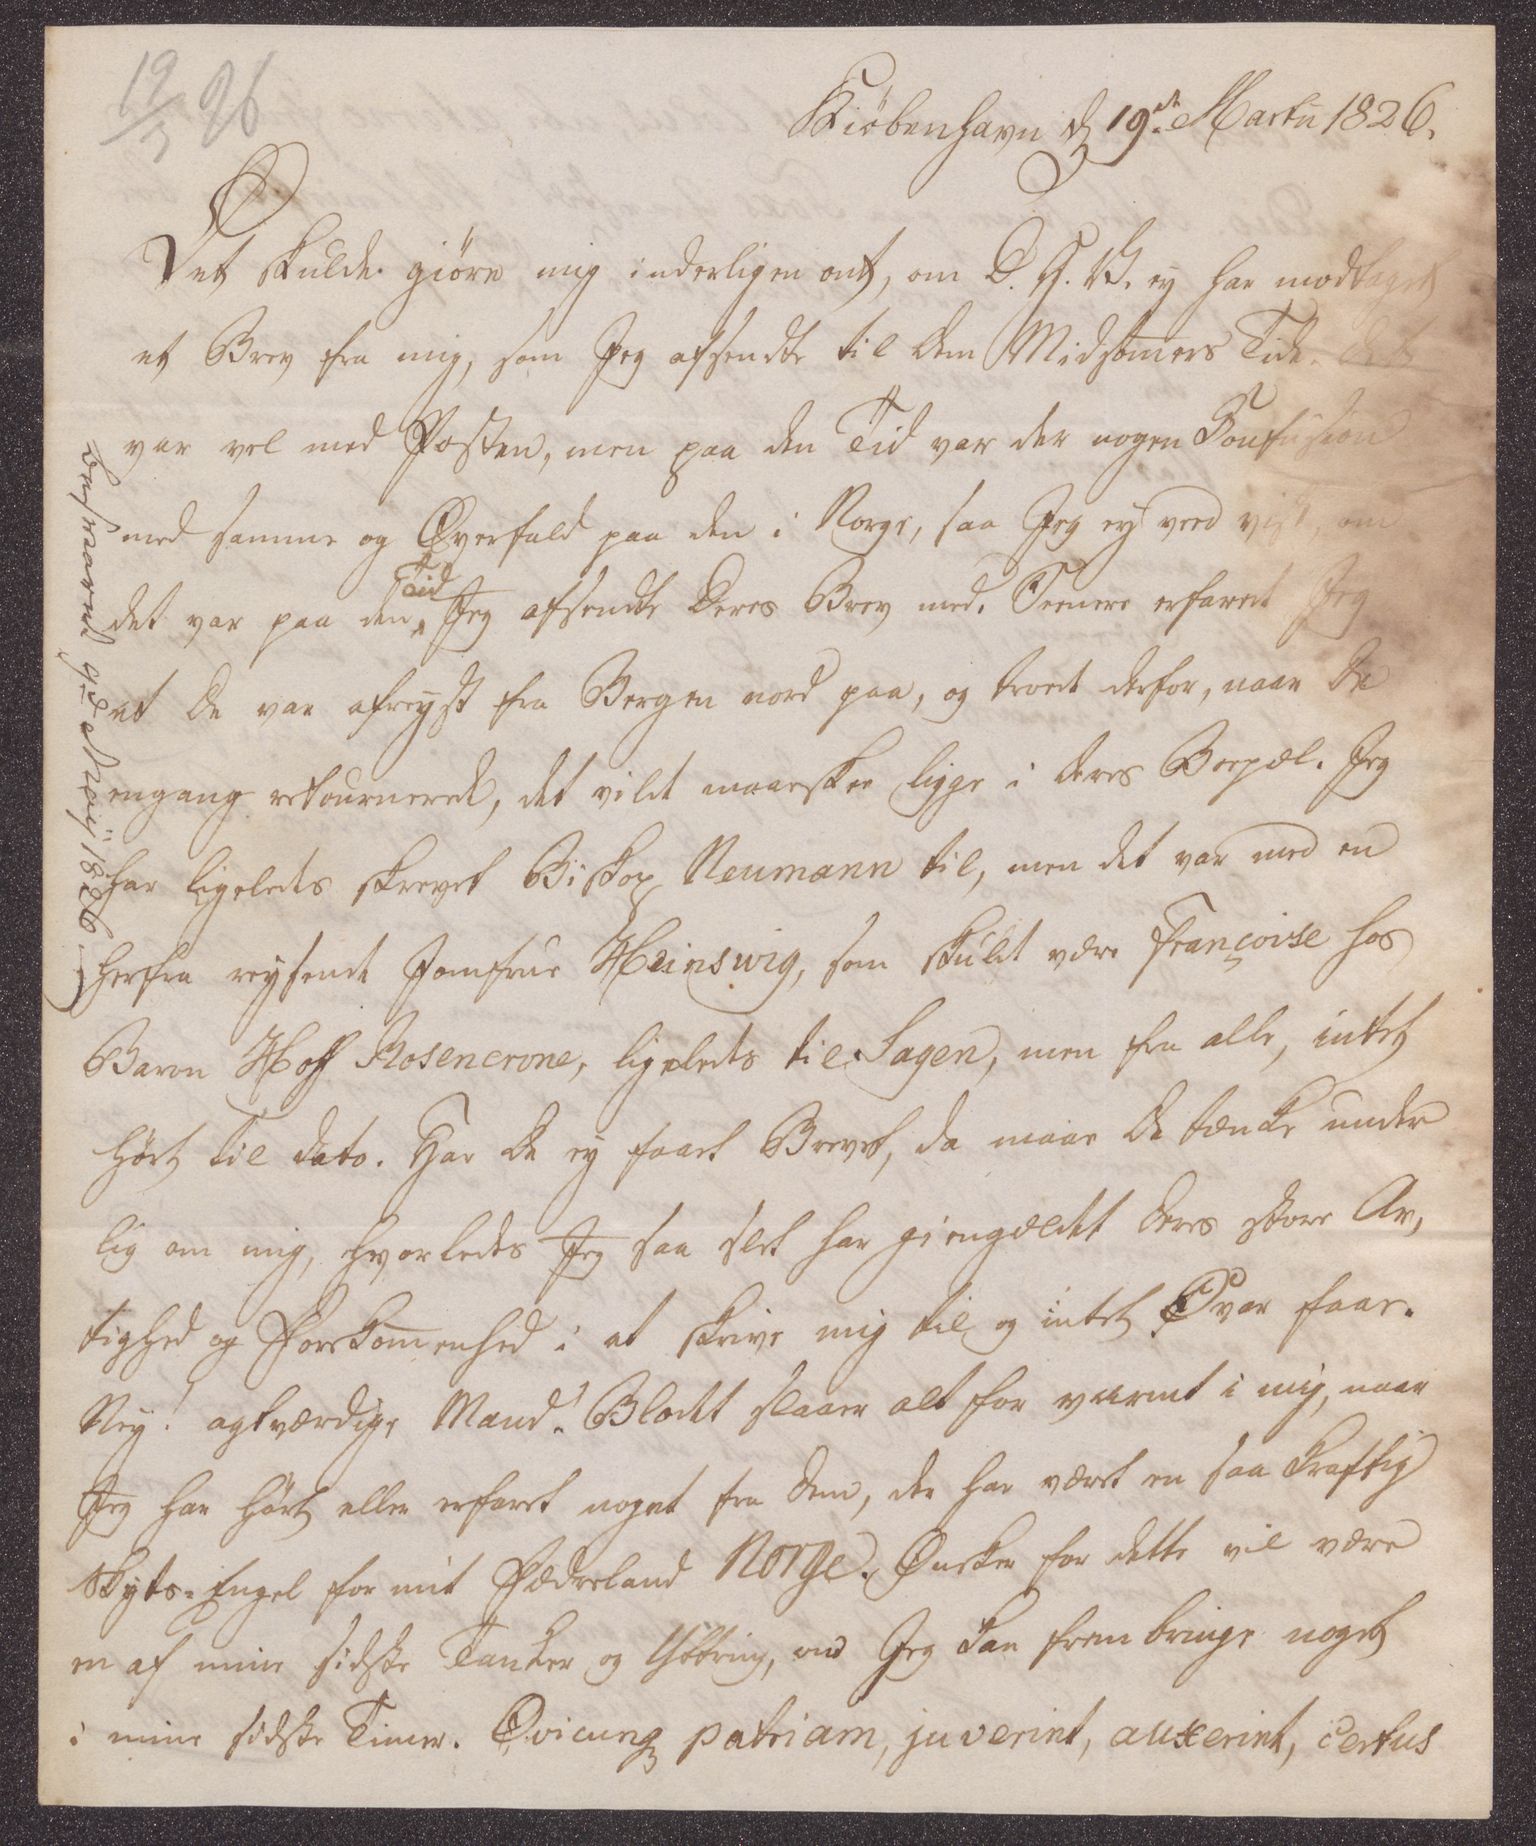 19/3 26
Kiöbenhavn d 19de Martii 1826.
Det skulde giöre mig inderligen ont, om D. H. V. ey har modtaget
et Brev fra mig, som Jeg afsendte til Dem Midsomers Tide. Det
var vel med Posten, men paa den Tid var der nogen Confusion
med samme og Overfald paa den i Norge, saa Jeg ey veed vist, om
det var paa den Tid Jeg afsendte Deres Brev med. Seenere erfaret Jeg
at De var afreyst fra Bergen nord paa, og troede derfor, naar De
engang retournerede, det vilde maaskee ligge i Deres Boepæl. Jeg
har ligeledes skrevet Biskop Neumann til, men det var med en
herfra reysende Jomfrue Heinswig, som skulde være Françoise hos
Baron Hoff Rosencrone, ligeledes til Sagen, men fra alle, intet
hört til dato. Har De ey faaet Brevet, da maae De tænke under
lig om mig, hvorledes Jeg saa slet har giengældet Deres store Ar,
tighed og Forekomenhed i at skrive mig til og intet Svar faar.
Ney! agtværdige Mand! Blodet slaaer alt for varmt i mig, naar
Jeg har hört eller erfaret noget fra Dem, der har været en saa kraftig
Skyts-Engel for mit Fædreland Norge. Ønsker for dette vil være
en af mine sidste Tanker og Yttring, om Jeg kan frembringe noget
i mine sidste Timer. Qvicunq patriam, juverint, auxerint, certus
besvaret 9de May 1826.